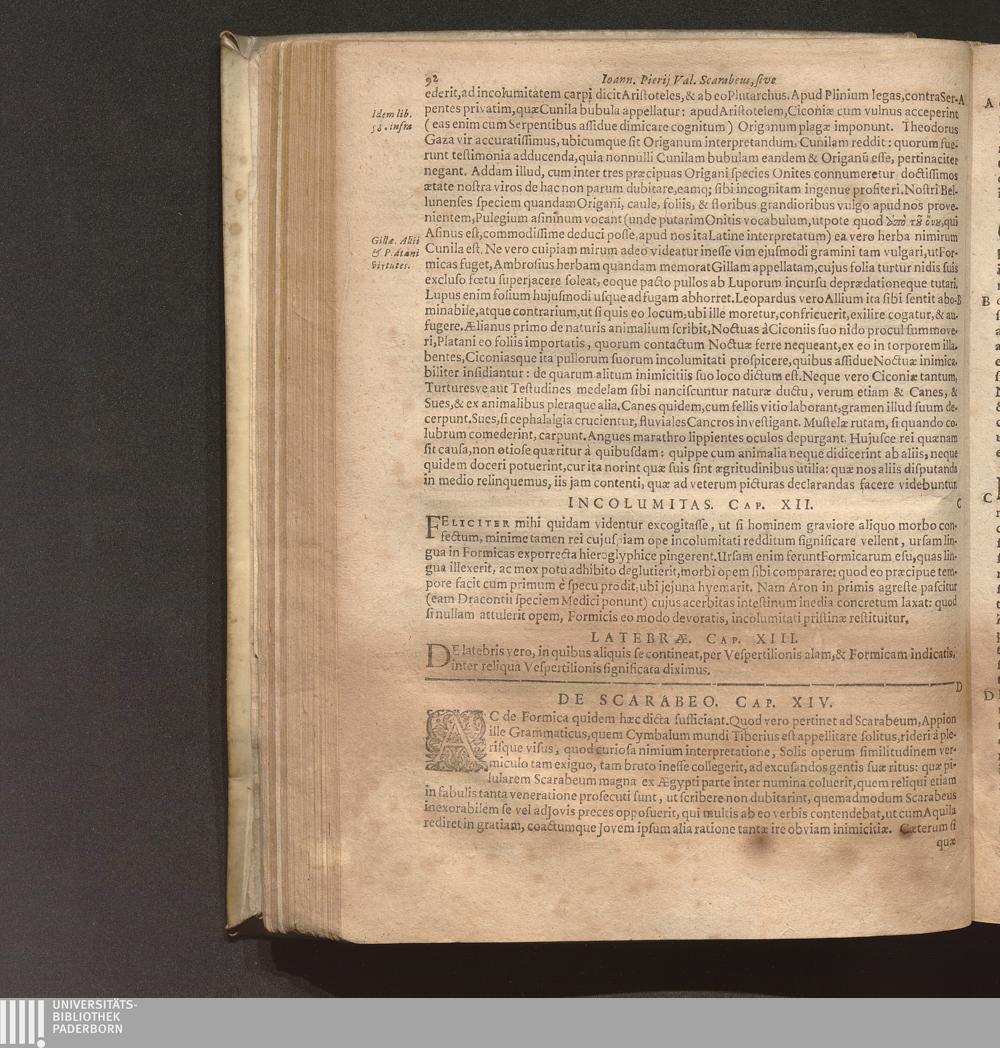 92
Ioann. Pierij Val. Scarabeus, sive
ederit, ad incolumitatem carpi dicit Aristoteles, & ab eo Plutarchus. Apud Plinium legas, contra Ser- A
Idem lib.
58. infra
pentes privatim, quæ Cunila bubula appellatur: apud Aristotelem, Ciconiæ cum vulnus acceperint
(eas enim cum Serpentibus assidue dimicare cognitum) Origanum plagæ imponunt. Theodorus
Gaza vir accuratissimus, ubicumque sit Origanum interpretandum, Cunilam reddit: quorum fue-
runt testimonia adducenda, quia nonnulli Cunilam bubulam eandem & Origanū esse, pertinaciter
negant. Addam illud, cum inter tres præcipuas Origani species Onites connumeretur doctissimos
ætate nostra viros de hac non parum dubitare, eamq; sibi incognitam ingenue profiteri. Nostri Bel-
lunenses speciem quandam Origani, caule, foliis, & floribus grandioribus vulgo apud nos prove-
nientem, Pulegium asininum vocant (unde putarim Onitis vocabulum, utpote quod ἀπὸ τῦ ὄνυ, qui
Asinus est, commodissime deduci posse, apud nos ita Latine interpretatum) ea vero herba nimirum
Gillæ. Allii
& Platani
virtutes.
Cunila est. Ne vero cuipiam mirum adeo videatur inesse vim ejusmodi gramini tam vulgari, ut For-
micas fuget, Ambrosius herbam quandam memorat Gillam appellatam, cujus folia turtur nidis suis
excluso fœtu superjacere soleat, eoque pacto pullos ab Luporum incursu deprædationeque tutari.
Lupus enim folium hujusmodi usque ad fugam abhorret. Leopardus vero Allium ita sibi sentit abo- B
minabile, atque contrarium, ut si quis eo locum, ubi ille moretur, confricuerit, exilire cogatur, & au-
fugere. Ælianus primo de naturis animalium scribit, Noctuas à Ciconiis suo nido procul summove-
ri, Platani eo foliis importatis, quorum contactum Noctuæ ferre nequeant, ex eo in torporem illa-
bentes, Ciconiasque ita pullorum suorum incolumitati prospicere, quibus assidue Noctuæ inimica-
biliter insidiantur: de quarum alitum inimicitiis suo loco dictum est. Neque vero Ciconiæ tantum,
Turturesve aut Testudines medelam sibi nanciscuntur naturæ ductu, verum etiam & Canes, &
Sues, & ex animalibus pleraque alia. Canes quidem, cum fellis vitio laborant, gramen illud suum de-
cerpunt. Sues, si cephalalgia crucientur, fluviales Cancros investigant. Mustelæ rutam, si quando co-
lubrum comederint, carpunt. Angues marathro lippientes oculos depurgant. Hujusce rei quænam
sit causa, non otiose quæritur à quibusdam: quippe cum animalia neque didicerint ab aliis, neque
quidem doceri potuerint, cur ita norint quæ suis sint ægritudinibus utilia: quæ nos aliis disputanda
in medio relinquemus, iis jam contenti, quæ ad veterum picturas declarandas facere videbuntur.
INCOLUMITAS. CAP. XII. C
FELICITER mihi quidam videntur excogitasse, ut si hominem graviore aliquo morbo con-
fectum, minime tamen rei cujuspiam ope incolumitati redditum significare vellent, ursam lin-
gua in Formicas exporrecta hieroglyphice pingerent. Ursam enim ferunt Formicarum esu, quas lin-
gua illexerit, ac mox potu adhibito deglutierit, morbi opem sibi comparare: quod eo præcipue tem-
pore facit cum primum è specu prodit, ubi jejuna hyemarit. Nam Aron in primis agreste pascitur
(eam Dracontii speciem Medici ponunt) cujus acerbitas intestinum inedia concretum laxat: quod
si nullam attulerit opem, Formicis eo modo devoratis, incolumitati pristinæ restituitur.
LATEBRÆ. CAP. XIII.
DE latebris vero, in quibus aliquis se contineat, per Vespertilionis alam, & Formicam indicatis,
inter reliqua Vespertilionis significata diximus.
D
DE SCARABEO. CAP. XIV.
AC de Formica quidem hæc dicta sufficiant. Quod vero pertinet ad Scarabeum, Appion
ille Grammaticus, quem Cymbalum mundi Tiberius est appellitare solitus, rideri à ple-
risque visus, quod curiosa nimium interpretatione, Solis operum similitudinem ver-
miculo tam exiguo, tam bruto inesse collegerit, ad excusandos gentis suæ ritus: quæ pi-
lularem Scarabeum magna ex Ægypti parte inter numina coluerit, quem reliqui etiam
in fabulis tanta veneratione prosecuti sunt, ut scribere non dubitarint, quemadmodum Scarabeus
inexorabilem se vel ad Jovis preces opposuerit, qui multis ab eo verbis contendebat, ut cum Aquila
rediret in gratiam, coactumque Jovem ipsum alia ratione tantæ ire obviam inimicitiæ. Cæterum si
quæ
A
B
C
D
UNIVERSITÄTS-
BIBLIOTHEK
PADERBORN